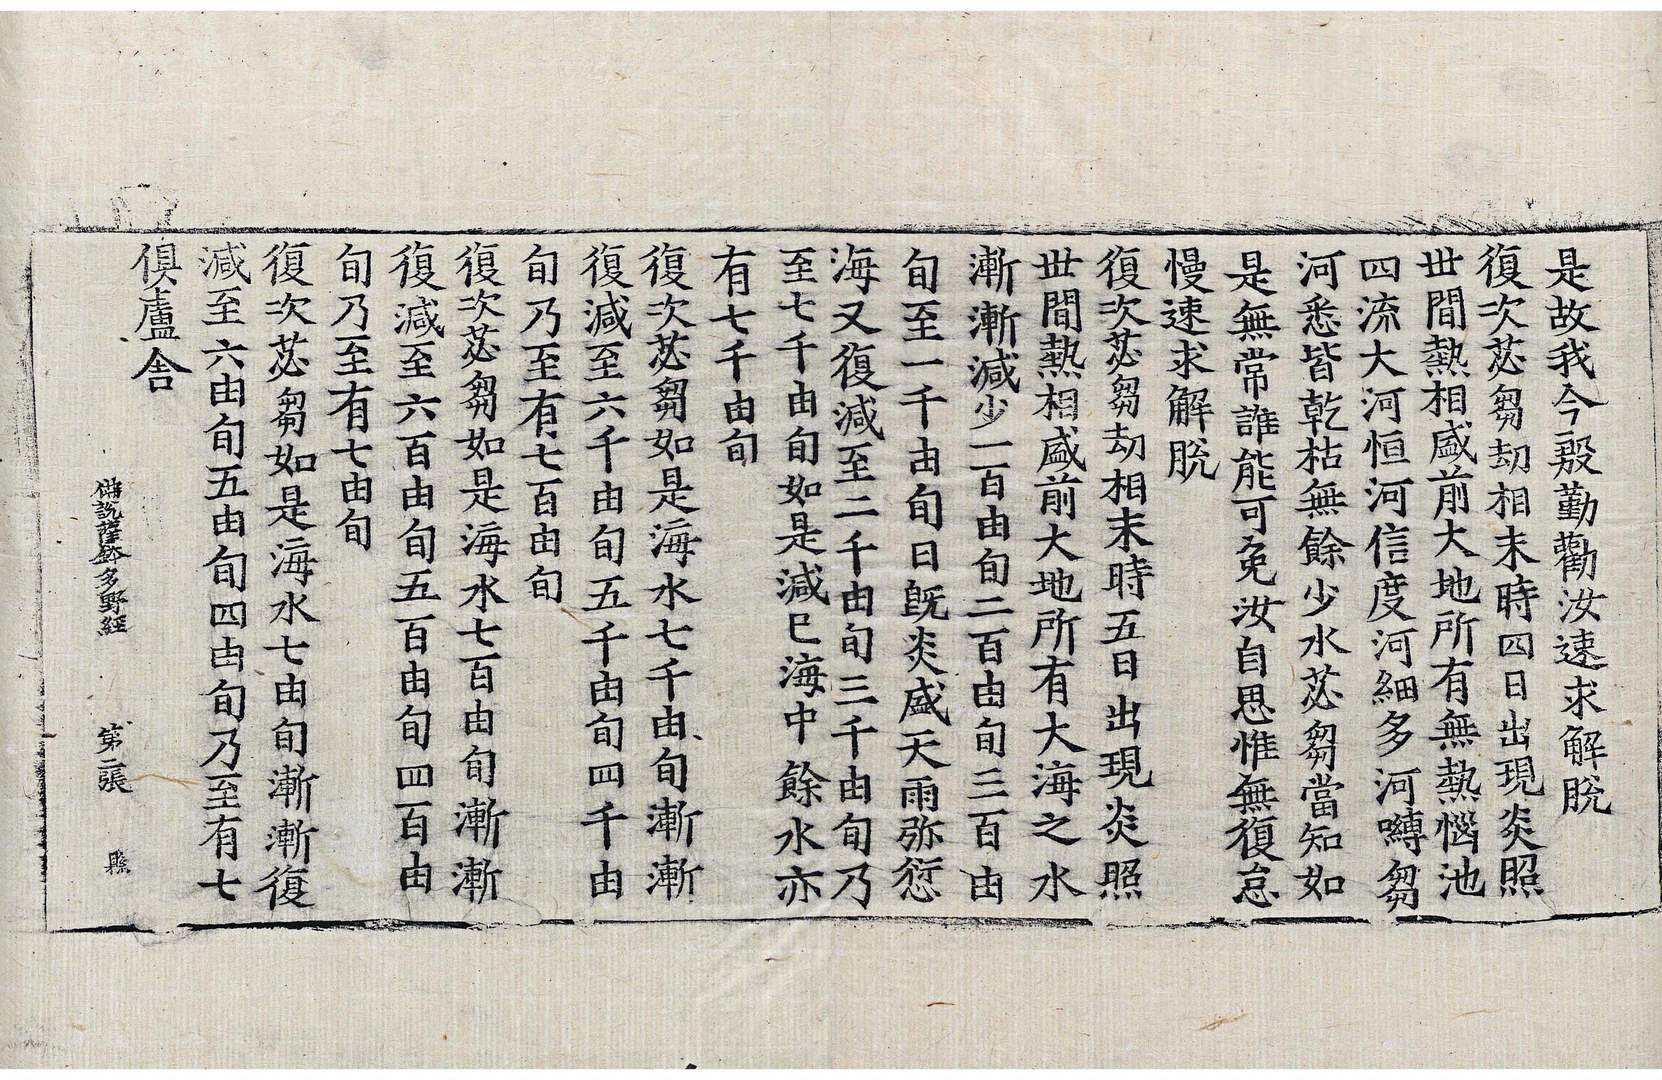 是故我今殷勤勸汝速求解脫
復次苾芻劫相末時四日出現炎照
世間熱相盛前大地所有無熱惱池
四流大河恒河信度河細多河嚩芻
河悉皆乾枯無餘少水苾芻當知如
是無常誰能可免汝自思惟無復怠
慢速求解脫
復次苾芻劫相末時五日出現炎照
世間熱相盛前大地所有大海之水
漸漸減少一百由旬二百由旬三百由
旬至一千由旬日旣炎盛天雨弥愆
海又復減至二千由旬三千由旬乃
至七千由旬如是減已海中餘水亦
有七千由旬
復次苾芻如是海水七千由旬漸漸
復減至六千由旬五千由旬四千由
旬乃至有七百由旬
復次苾芻如是海水七百由旬漸漸
復減至六百由旬五百由旬四百由
旬乃至有七由旬
復次苾芻如是海水七由旬漸漸復
減至六由旬五由旬四由旬乃至有七
俱盧舍
佛說薩鉢多野經 第二張 縣